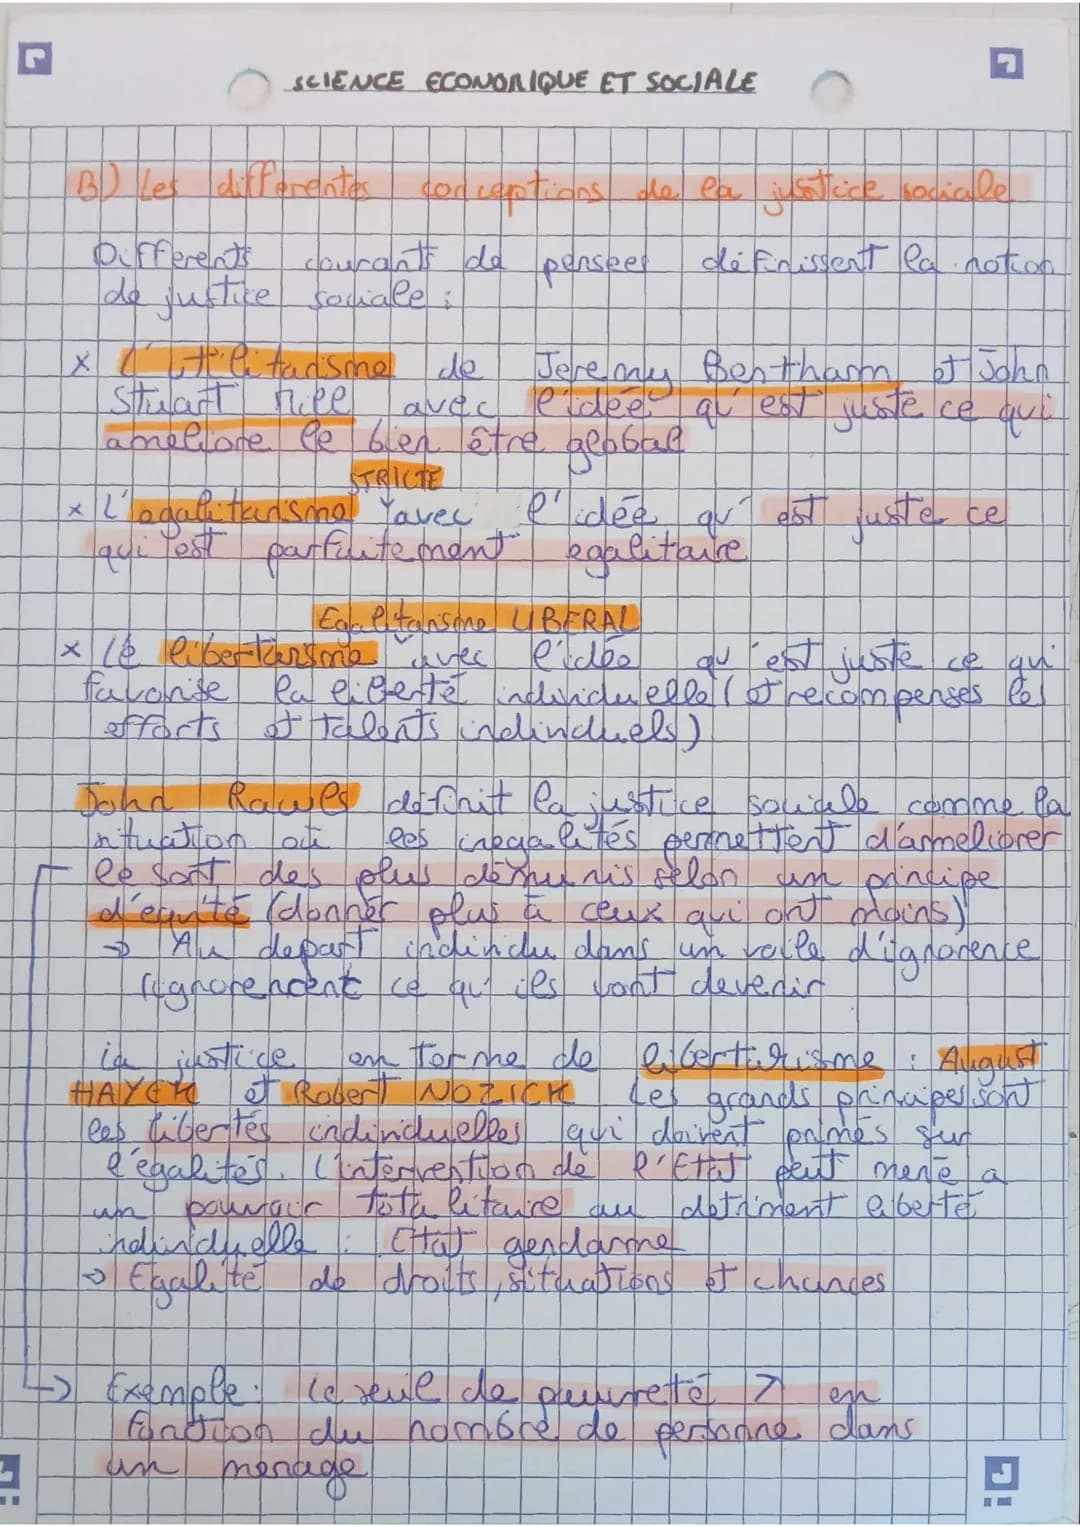 SCIENCE ECONOMIQUE ET SOCIALE
B) Les differentes conceptions de la justice sociale
Differents courants de pensées définissent la notion
de justice sociale :
x L'utilitarisme de Jeremy Bentham et John
Stuart Mill avec l'idée qu'est juste ce qui
améliore le bien être global
STRICTE
x L'egalitarisme avec l'idée qu'est juste ce
qui est parfaitement egalitaire
Egalitarisme LIBERAL
x Le libertarisme avec l'idée qu'est juste ce qui
favorise la liberté individuelle (et recompenses les
efforts et talents individuels)
John Rawls définit la justice sociale comme la
situation où les inégalités permettent d'améliorer
le sort des plus démunis selon un principe
d'équité (donner plus à ceux qui ont moins)
→ Au depart individu dans un voile d'ignorence
ce qu'ils vont devenir
La justice en terme de libertarisme : August
HAYEK et Robert NOZICK Les grands principes sont
les libertés individuelles qui doivent primés sur
l'égalités. L'intervention de l'Etat peut mené a
un pouvoir totalitaire au détriment liberté
individuelle : Etat gendarme
→ Egalité de droits, situations et chances
→ Exemple : le seuil de pauvreté ↗ en
fonction du nombre de personne dans
un menage